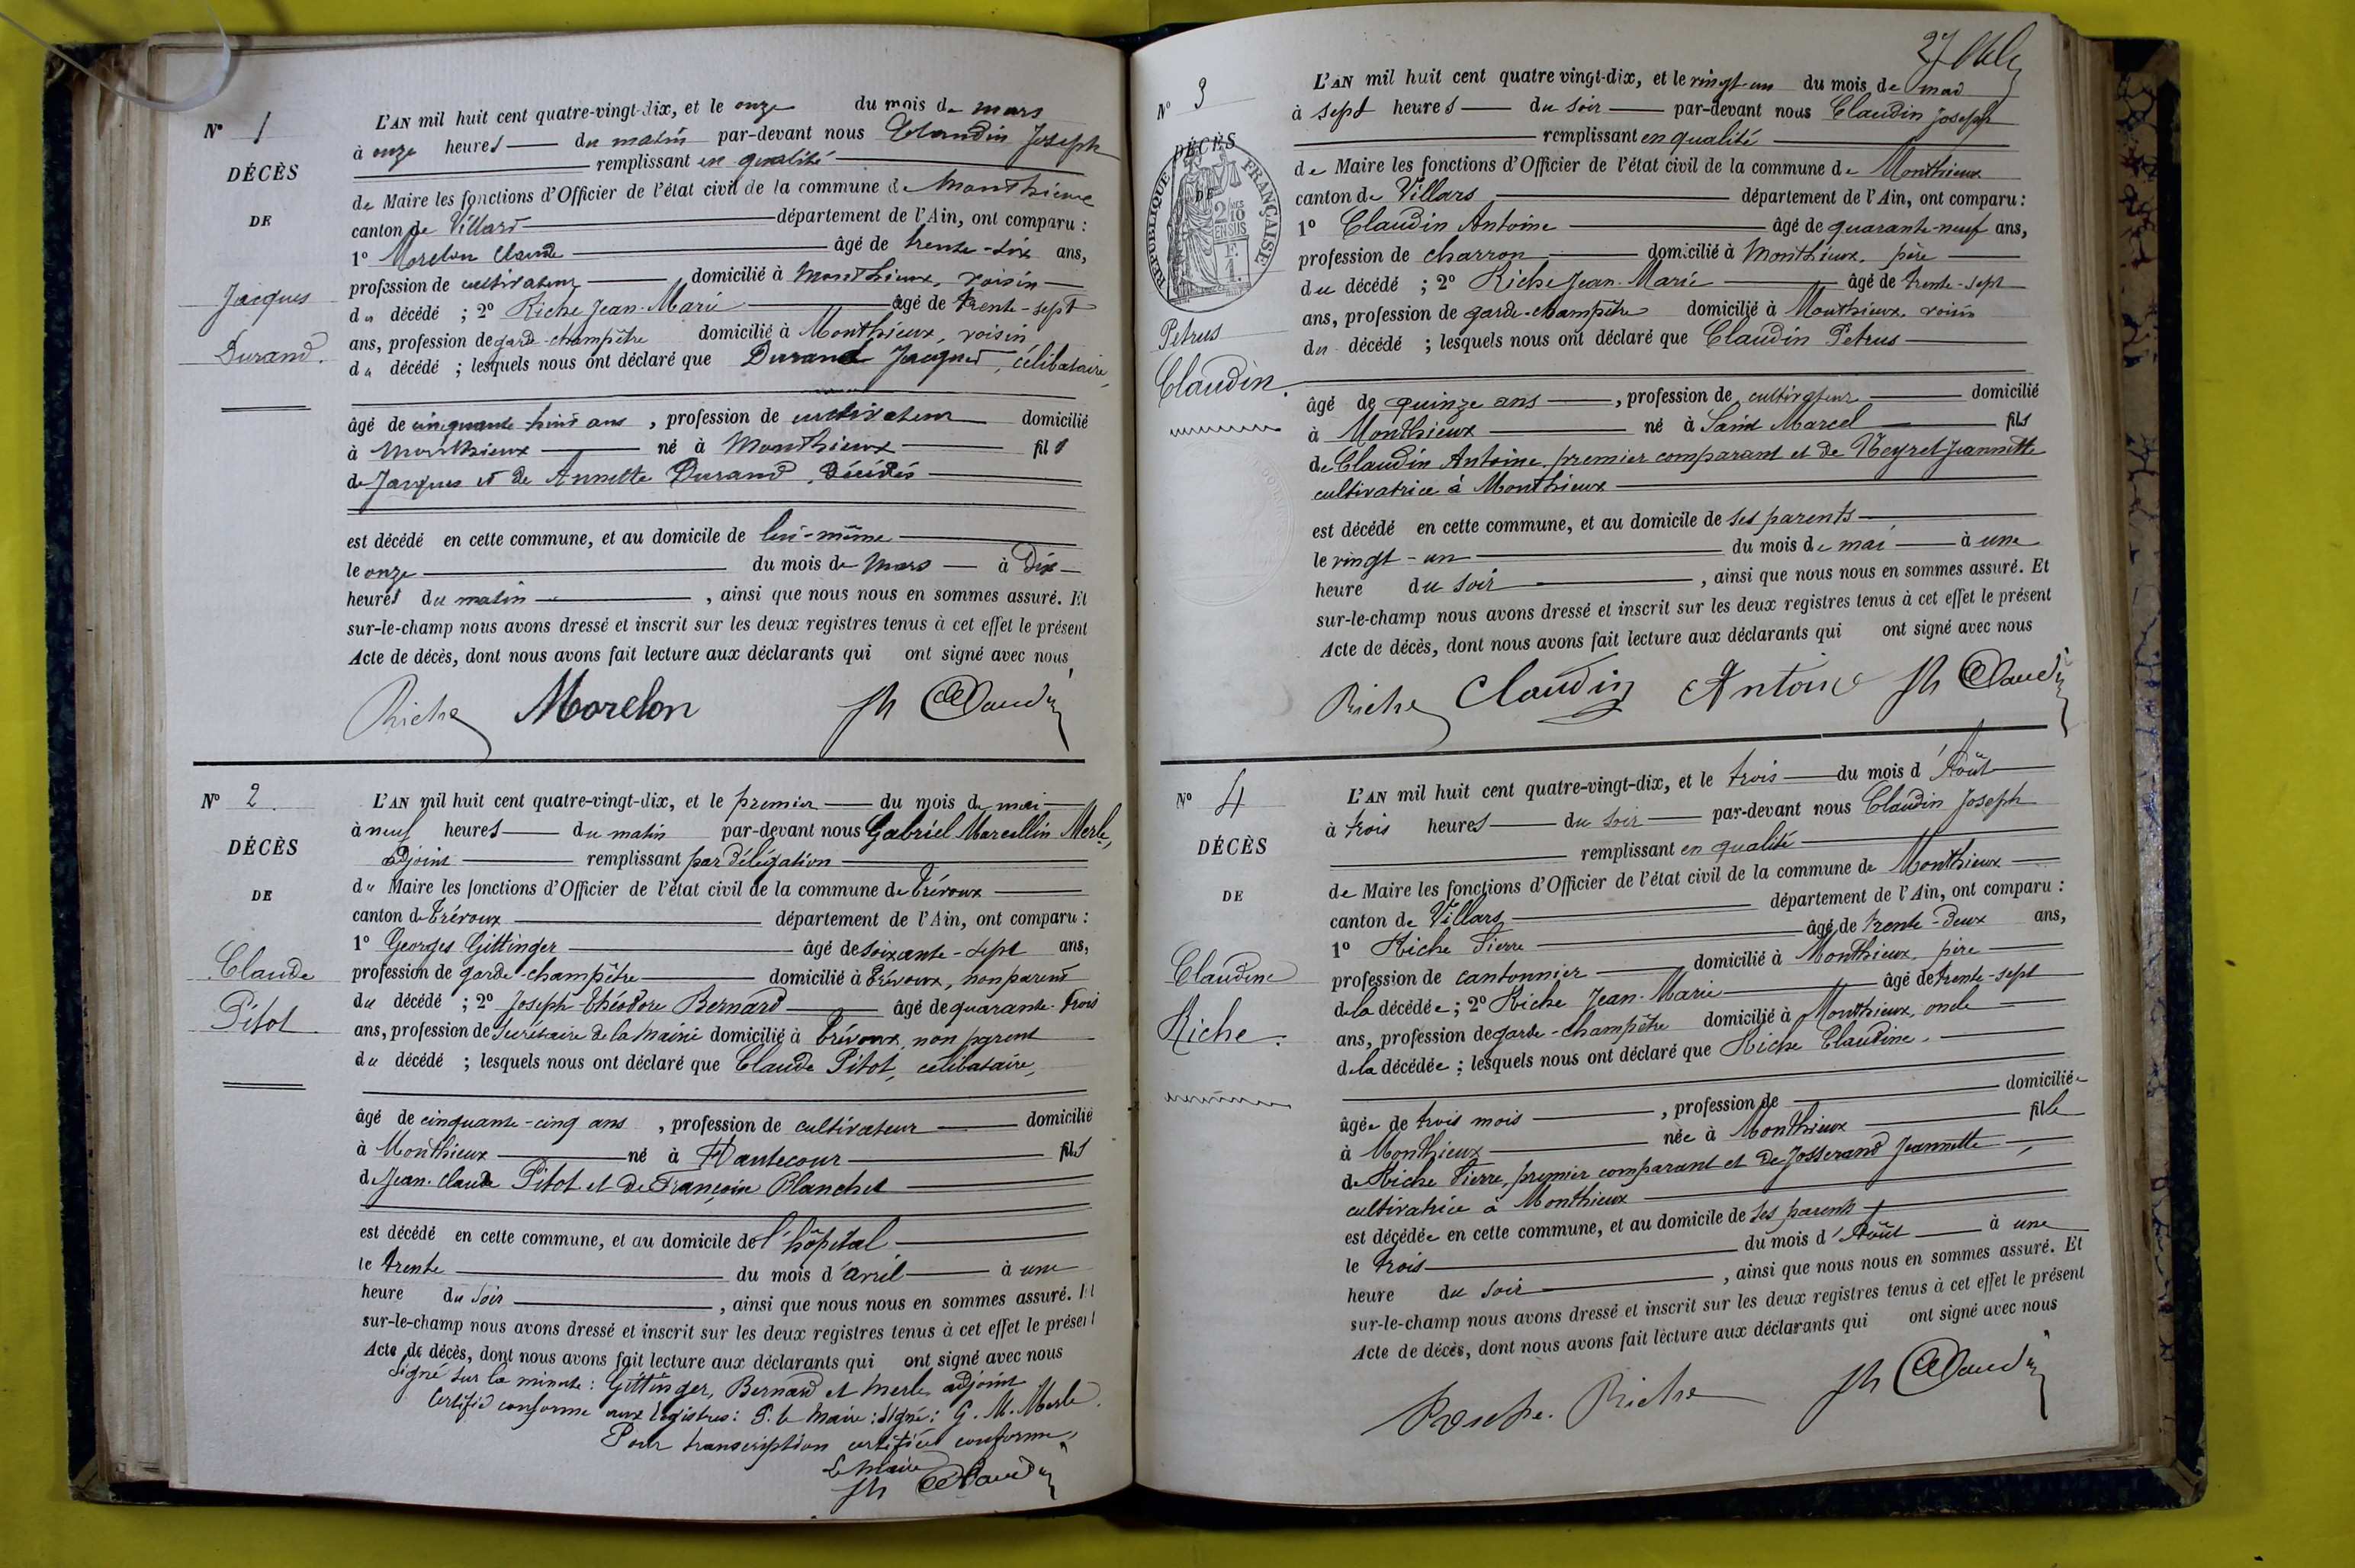 N° 1
DÉCÈS
DE
Jacques
Durand.
L'AN mil huit cent quatre-vingt-dix, et le onze du mois de mars
à onze heures du matin par-devant nous Claudin Joseph
remplissant en qualité
de Maire les fonctions d'Officier de l'état civil de la commune de Monthieux
canton de Villars département de l'Ain, ont comparu :
1° Morelon Claude âgé de trente-six ans,
profession de cultivateur domicilié à Monthieux, voisin
du décédé ; 2° Riche Jean-Marie âgé de trente-sept
ans, profession de garde-champêtre domicilié à Monthieux, voisin
du décédé ; lesquels nous ont déclaré que Durand Jacques, célibataire,
âgé de cinquante huit ans , profession de cultivateur domicilié
à Monthieux né à Monthieux fils
de Jacques et de Annette Durand, Décédés
est décédé en cette commune, et au domicile de lui-même
le onze du mois de Mars à Dix
heures du matin , ainsi que nous nous en sommes assuré. Et
sur-le-champ nous avons dressé et inscrit sur les deux registres tenus à cet effet le présent
Acte de décès, dont nous avons fait lecture aux déclarants qui ont signé avec nous
Riche Morelon Jh Claudin
N° 2
DÉCÈS
DE
Claude
Pitot
L'AN mil huit cent quatre-vingt-dix, et le premier du mois de mai
à neuf heures du matin par-devant nous Gabriel Marcellin Merle,
adjoint remplissant par délégation
du Maire les fonctions d'Officier de l'état civil de la commune de Trévoux
canton de Trévoux département de l'Ain, ont comparu :
1° Georges Gittinger âgé de soixante-sept ans,
profession de garde-champêtre domicilié à Trévoux, non parent
du décédé ; 2° Joseph-Théodore Bernard âgé de quarante-trois
ans, profession de Secrétaire de la Mairie domicilié à Trévoux, non parent
du décédé ; lesquels nous ont déclaré que Claude Pitot, célibataire,
âgé de cinquante-cinq ans , profession de cultivateur domicilié
à Monthieux né à Hautecour fils
de Jean-Claude Pitot et de Françoise Blanchet
est décédé en cette commune, et au domicile de l'hôpital
le trente du mois d'avril à une
heure du soir , ainsi que nous nous en sommes assuré. Et
sur-le-champ nous avons dressé et inscrit sur les deux registres tenus à cet effet le présent
Acte de décès, dont nous avons fait lecture aux déclarants qui ont signé avec nous
Signé sur la minute : Gittinger, Bernard et Merle, adjoint
Certifié conforme aux registres : P. le Maire : Signé : G. M. Merle.
Pour transcription certifiée conforme,
Le Maire
Jh Claudin
27
N° 3
DÉCÈS
DE
RÉPUBLIQUE FRANÇAISE
2/10
EN SUS
Petrus
Claudin.
L'AN mil huit cent quatre vingt-dix, et le vingt-un du mois de mai
à sept heures du soir par-devant nous Claudin Joseph
remplissant en qualité
de Maire les fonctions d'Officier de l'état civil de la commune de Monthieux
canton de Villars département de l'Ain, ont comparu :
1° Claudin Antoine âgé de quarante-neuf ans,
profession de charron domicilié à Monthieux, père
du décédé ; 2° Riche Jean-Marie âgé de trente-sept
ans, profession de garde-champêtre domicilié à Monthieux, voisin
du décédé ; lesquels nous ont déclaré que Claudin Petrus
âgé de quinze ans , profession de cultivateur domicilié
à Monthieux né à Saint Marcel fils
de Claudin Antoine, premier comparant et de Neyret Jeannette
cultivatrice à Monthieux
est décédé en cette commune, et au domicile de ses parents
le vingt-un du mois de mai à une
heure du soir , ainsi que nous nous en sommes assuré. Et
sur-le-champ nous avons dressé et inscrit sur les deux registres tenus à cet effet le présent
Acte de décès, dont nous avons fait lecture aux déclarants qui ont signé avec nous
Riche Claudin Antoine Jh Claudin
N° 4
DÉCÈS
DE
Claudine
Riche.
L'AN mil huit cent quatre-vingt-dix, et le trois du mois d'Août
à trois heures du soir par-devant nous Claudin Joseph
remplissant en qualité
de Maire les fonctions d'Officier de l'état civil de la commune de Monthieux
canton de Villars département de l'Ain, ont comparu :
1° Riche Pierre âgé de trente-deux ans,
profession de cantonnier domicilié à Monthieux, père
de la décédée ; 2° Riche Jean-Marie âgé de trente-sept
ans, profession de garde-champêtre domicilié à Monthieux, oncle
de la décédée ; lesquels nous ont déclaré que Riche Claudine.
âgée de trois mois , profession de domiciliée
à Monthieux née à Monthieux fille
de Riche Pierre, premier comparant et de Josserand Jeannette,
cultivatrice à Monthieux
est décédée en cette commune, et au domicile de ses parents
le trois du mois d'Août à une
heure du soir , ainsi que nous nous en sommes assuré. Et
sur-le-champ nous avons dressé et inscrit sur les deux registres tenus à cet effet le présent
Acte de décès, dont nous avons fait lecture aux déclarants qui ont signé avec nous
Riche Jh Claudin